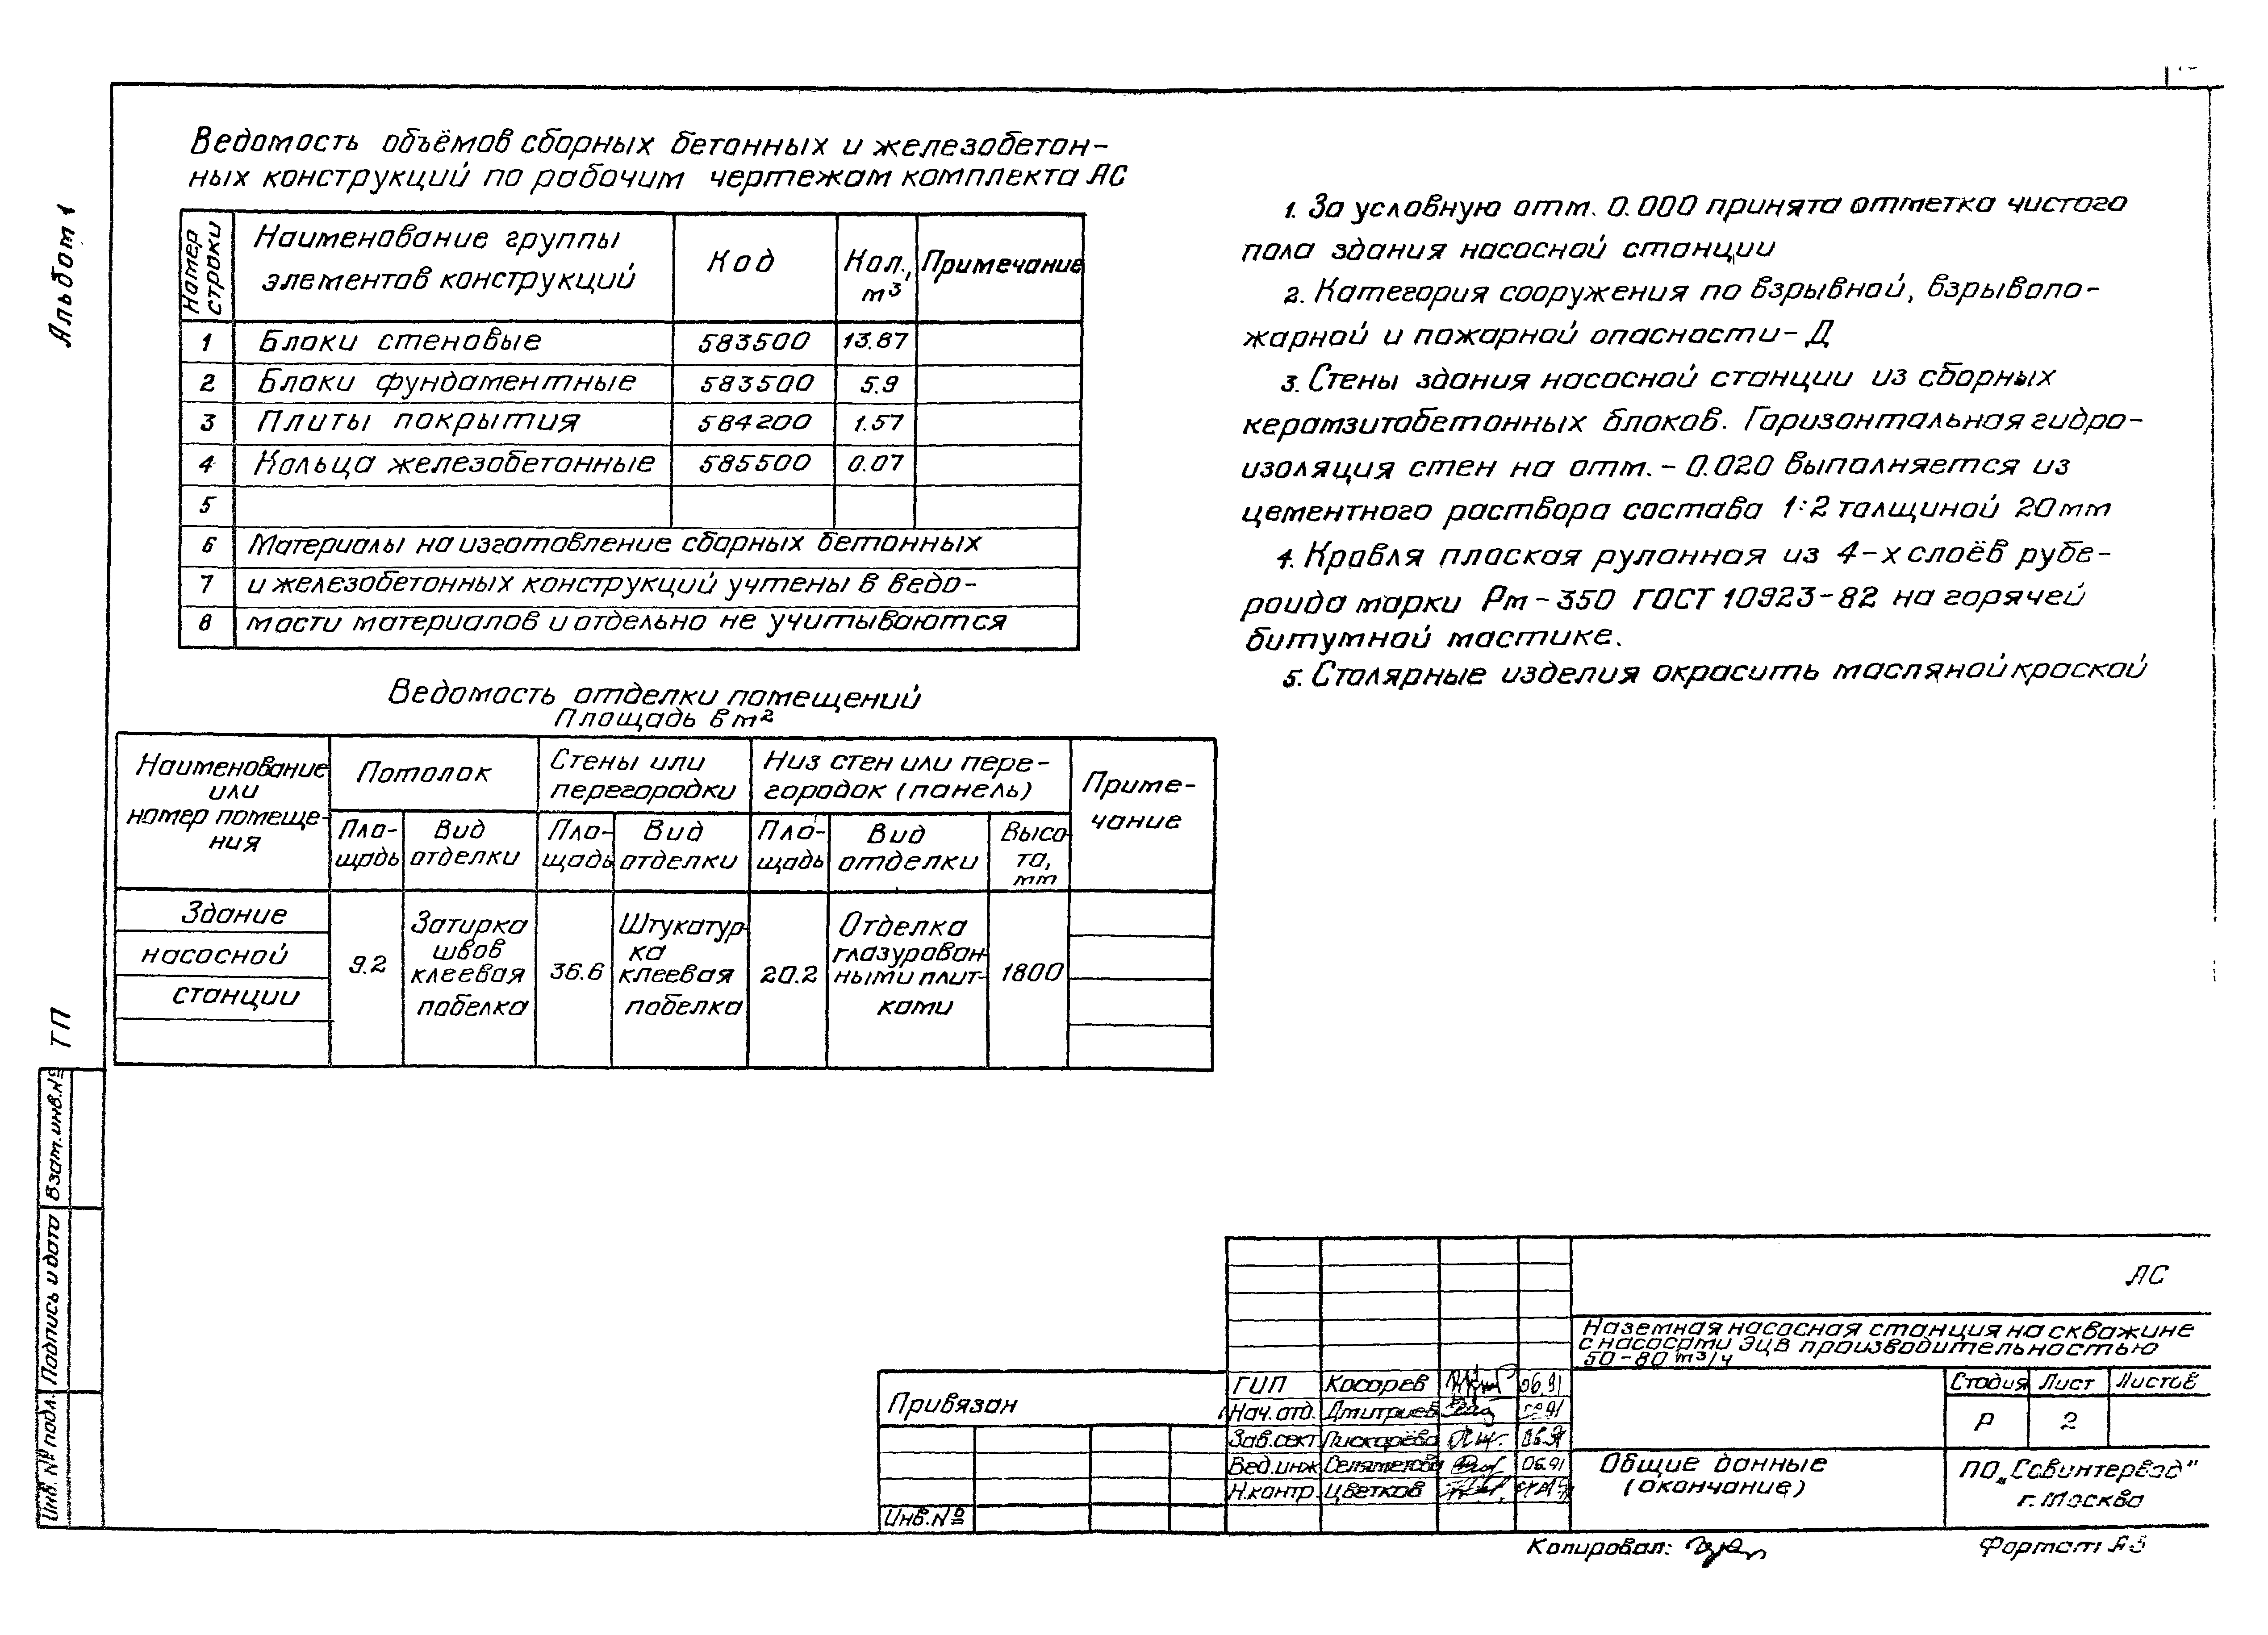 Альбом 1
Ведомость объёмов сборных бетонных и железобетон-
ных конструкций по рабочим чертежам комплекта АС
Номер строки
Наименование группы элементов конструкций
Код
Кол., м³
Примечание
1 Блоки стеновые 583500 13.87
2 Блоки фундаментные 583500 5.9
3 Плиты покрытия 584200 1.57
4 Кольца железобетонные 585500 0.07
5
6 Материалы на изготовление сборных бетонных
7 и железобетонных конструкций учтены в ведо-
8 мости материалов и отдельно не учитываются
1. За условную отм. 0.000 принята отметка чистого
пола здания насосной станции
2. Категория сооружения по взрывной, взрывопо-
жарной и пожарной опасности - Д
3. Стены здания насосной станции из сборных
керамзитобетонных блоков. Горизонтальная гидро-
изоляция стен на отм. - 0.020 выполняется из
цементного раствора состава 1:2 толщиной 20 мм
4. Кровля плоская рулонная из 4-х слоёв рубе-
роида марки Рм - 350 ГОСТ 10923-82 на горячей
битумной мастике.
5. Столярные изделия окрасить масляной краской
Ведомость отделки помещений
Площадь в м²
Наименование или номер помеще-ния
Потолок
Стены или перегородки
Низ стен или пере-городок (панель)
Приме-чание
Пло-щадь
Вид отделки
Пло-щадь
Вид отделки
Пло-щадь
Вид отделки
Высо та, мм
Здание
насосной
станции
9.2
Затирка
швов
клеевая
побелка
36.6
Штукатур-
ка
клеевая
побелка
20.2
Отделка
глазурован-
ными плит-
ками
1800
ТП
Взам.инв.№
Подпись и дата
Инв. № подл.
Привязан
Инв.№
АС
Наземная насосная станция на скважине
с насосами ЭЦВ производительностью
50-80 м³/ч
ГИП Косарев 06.91
Нач.отд. Дмитриев
Зав.сект Пискарёва
Вед.инж Селяметова 06.91
Н.контр. Цветков
Стадия Лист Листов
Р 2
Общие данные
(окончание)
ПО „Совинтервод"
г. Москва
Копировал:
Формат А3